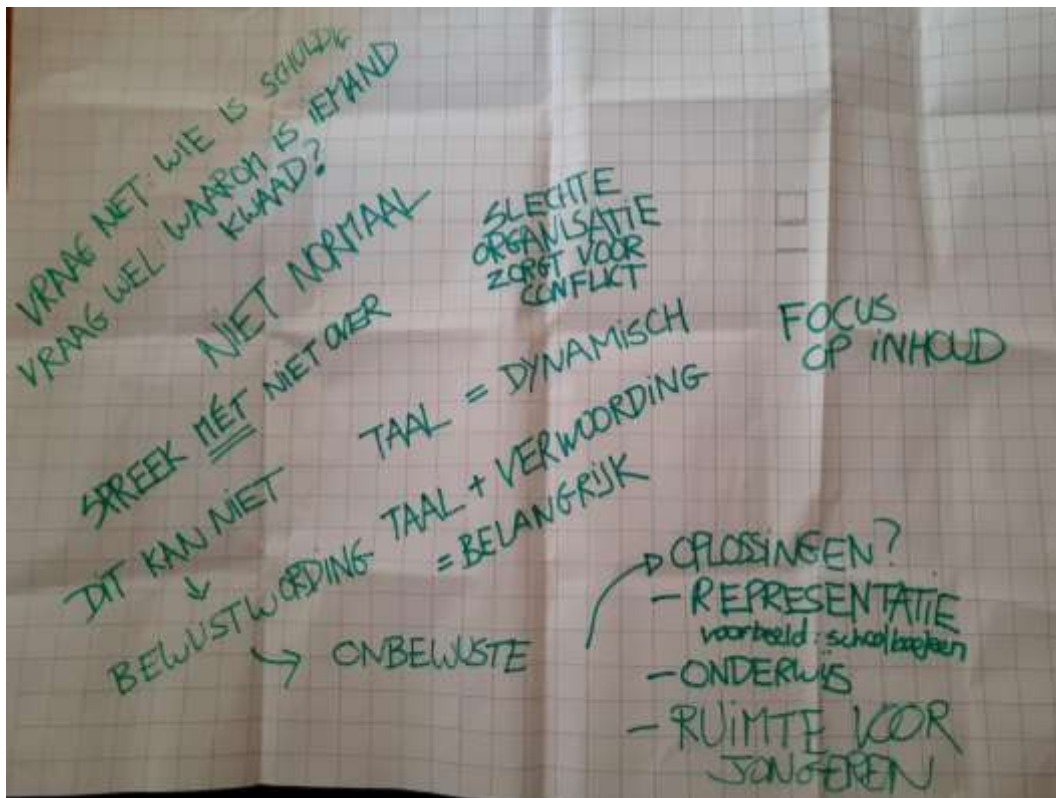 VRAAG NIET: WIE IS SCHULDIG
VRAAG WEL: WAAROM IS IEMAND
KWAAD?
NIET NORMAAL
SLECHTE
ORGANISATIE
ZORGT VOOR
CONFLICT
SPREEK MÉT NIET OVER
TAAL = DYNAMISCH
FOCUS
OP INHOUD
DIT KAN NIET
↓
BEWUSTWORDING
→ ONBEWUSTE
TAAL + VERWOORDING
= BELANGRIJK
→ OPLOSSINGEN?
- REPRESENTATIE
voorbeeld: schoolboeken
- ONDERWIJS
- RUIMTE VOOR
JONGEREN